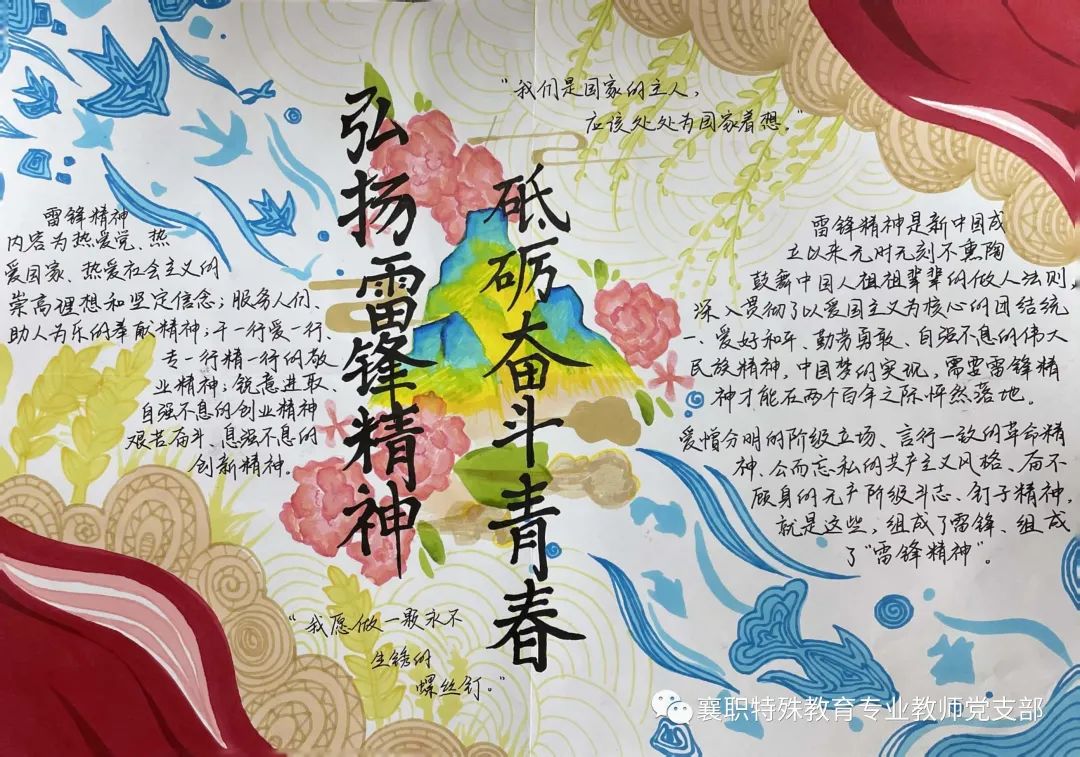 弘扬雷锋精神
砥砺奋斗青春
“我们是国家的主人,
应该处处为国家着想。”
雷锋精神
内容为热爱党、热
爱国家、热爱社会主义的
崇高理想和坚定信念；服务人们、
助人为乐的奉献精神；干一行爱一行、
专一行精一行的敬
业精神；锐意进取、
自强不息的创业精神
艰苦奋斗、息强不息的
创新精神。
雷锋精神是新中国成
立以来无时无刻不熏陶
鼓舞中国人祖祖辈辈的做人法则
深入贯彻了以爱国主义为核心的团结统
一、爱好和平、勤劳勇敢、自强不息的伟大
民族精神，中国梦的实现，需要雷锋精
神才能在两个百年之际怦然落地。
爱憎分明的阶级立场、言行一致的革命精
神、公而忘私的共产主义风格、奋不
顾身的无产阶级斗志、钉子精神，
就是这些，组成了雷锋、组成
了“雷锋精神”。
“我愿做一颗永不
生锈的
螺丝钉。”
襄职特殊教育专业教师党支部